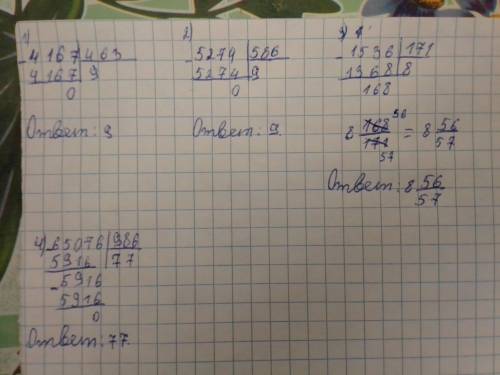 1)
4167 463
4167 9
0
Ответ: 9
2)
5274 586
5274 9
0
Ответ: 9.
3)
1536 171
1368 8
168
8 168/171 56 57 = 8 56/57
Ответ: 8 56/57
4) 65076 986
5916 77
5916
5916
0
Ответ: 77.